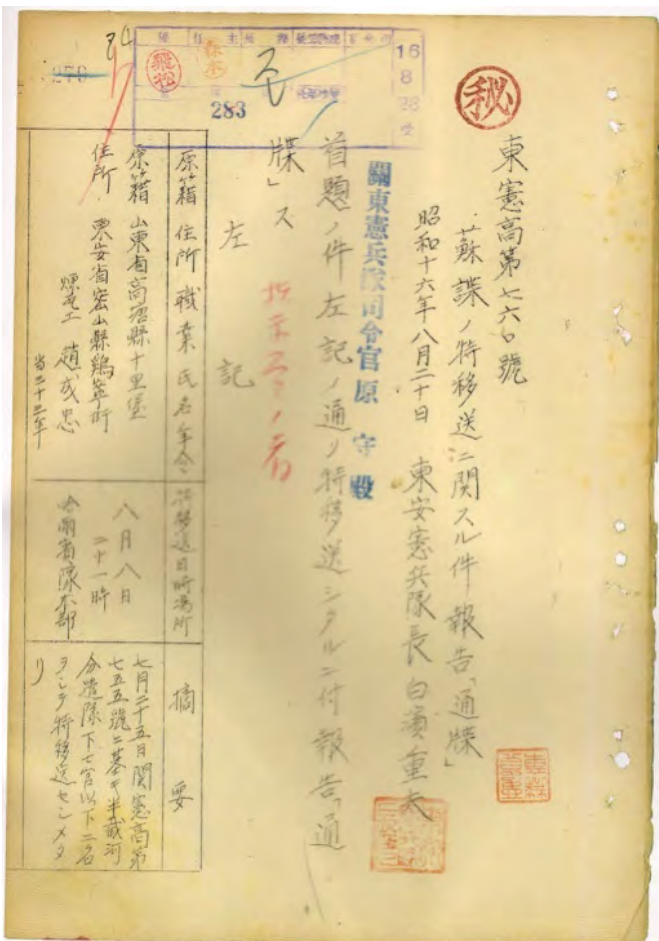 秘
東憲高第七六〇號
蘇諜ノ特移送ニ関スル件報告「通牒」
昭和十六年八月二十日 東安憲兵隊長 白濱重夫
關東憲兵隊司令官原守殿
首題ノ件左記ノ通リ特移送シタルニ付報告「通
牒」ス
左記
16
8
283
270
原籍 住所 職業 氏名 年令
特移送日時場所
摘要
原籍 山東省高唐縣十里堡
住所 東安省密山縣鶏寧街
煉瓦工 趙成忠
当二十三年
八月八日
二十一時
哈爾賓隊本部
七月二十五日関憲高第
七五五號ニ基キ半截河
分遣隊下士官以下二名
ヲシテ特移送セシメタ
リ